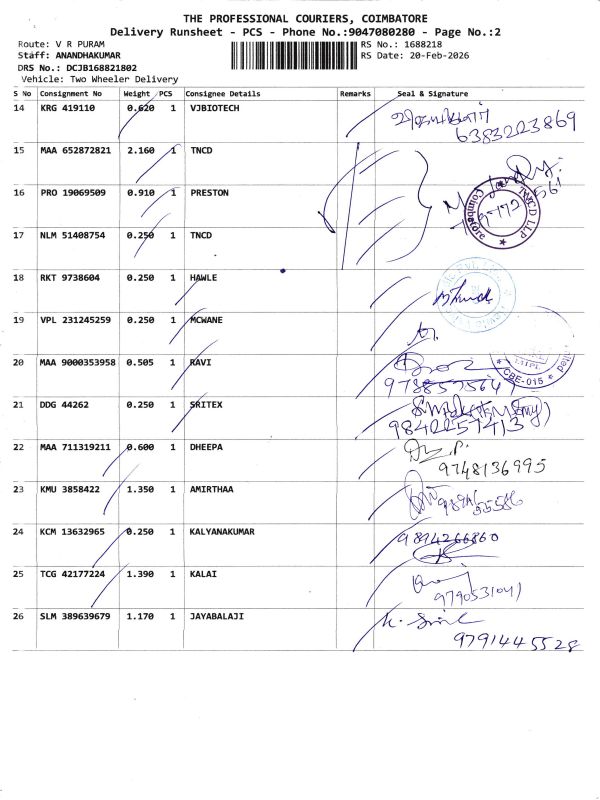 THE PROFESSIONAL COURIERS, COIMBATORE
Delivery Runsheet - PCS - Phone No.:9047080280 - Page No.:2
Route: V R PURAM
Staff: ANANDHAKUMAR
DRS No.: DCJB168821802
Vehicle: Two Wheeler Delivery
RS No.: 1688218
RS Date: 20-Feb-2026
S No Consignment No Weight PCS Consignee Details Remarks Seal & Signature
14 KRG 419110 0.620 1 VJBIOTECH
6383223869
15 MAA 652872821 2.160 1 TNCD
16 PRO 19069509 0.910 1 PRESTON
TNCD LLP
Coimbatore
17 NLM 51408754 0.250 1 TNCD
18 RKT 9738604 0.250 1 HAWLE
19 VPL 231245259 0.250 1 MCWANE
20 MAA 9000353958 0.505 1 RAVI
CBE-015
21 DDG 44262 0.250 1 SRITEX
9842257413
22 MAA 711319211 0.600 1 DHEEPA
9748136995
23 KMU 3858422 1.350 1 AMIRTHAA
24 KCM 13632965 0.250 1 KALYANAKUMAR
9894266860
25 TCG 42177224 1.390 1 KALAI
9790531041
26 SLM 389639679 1.170 1 JAYABALAJI
9791445528